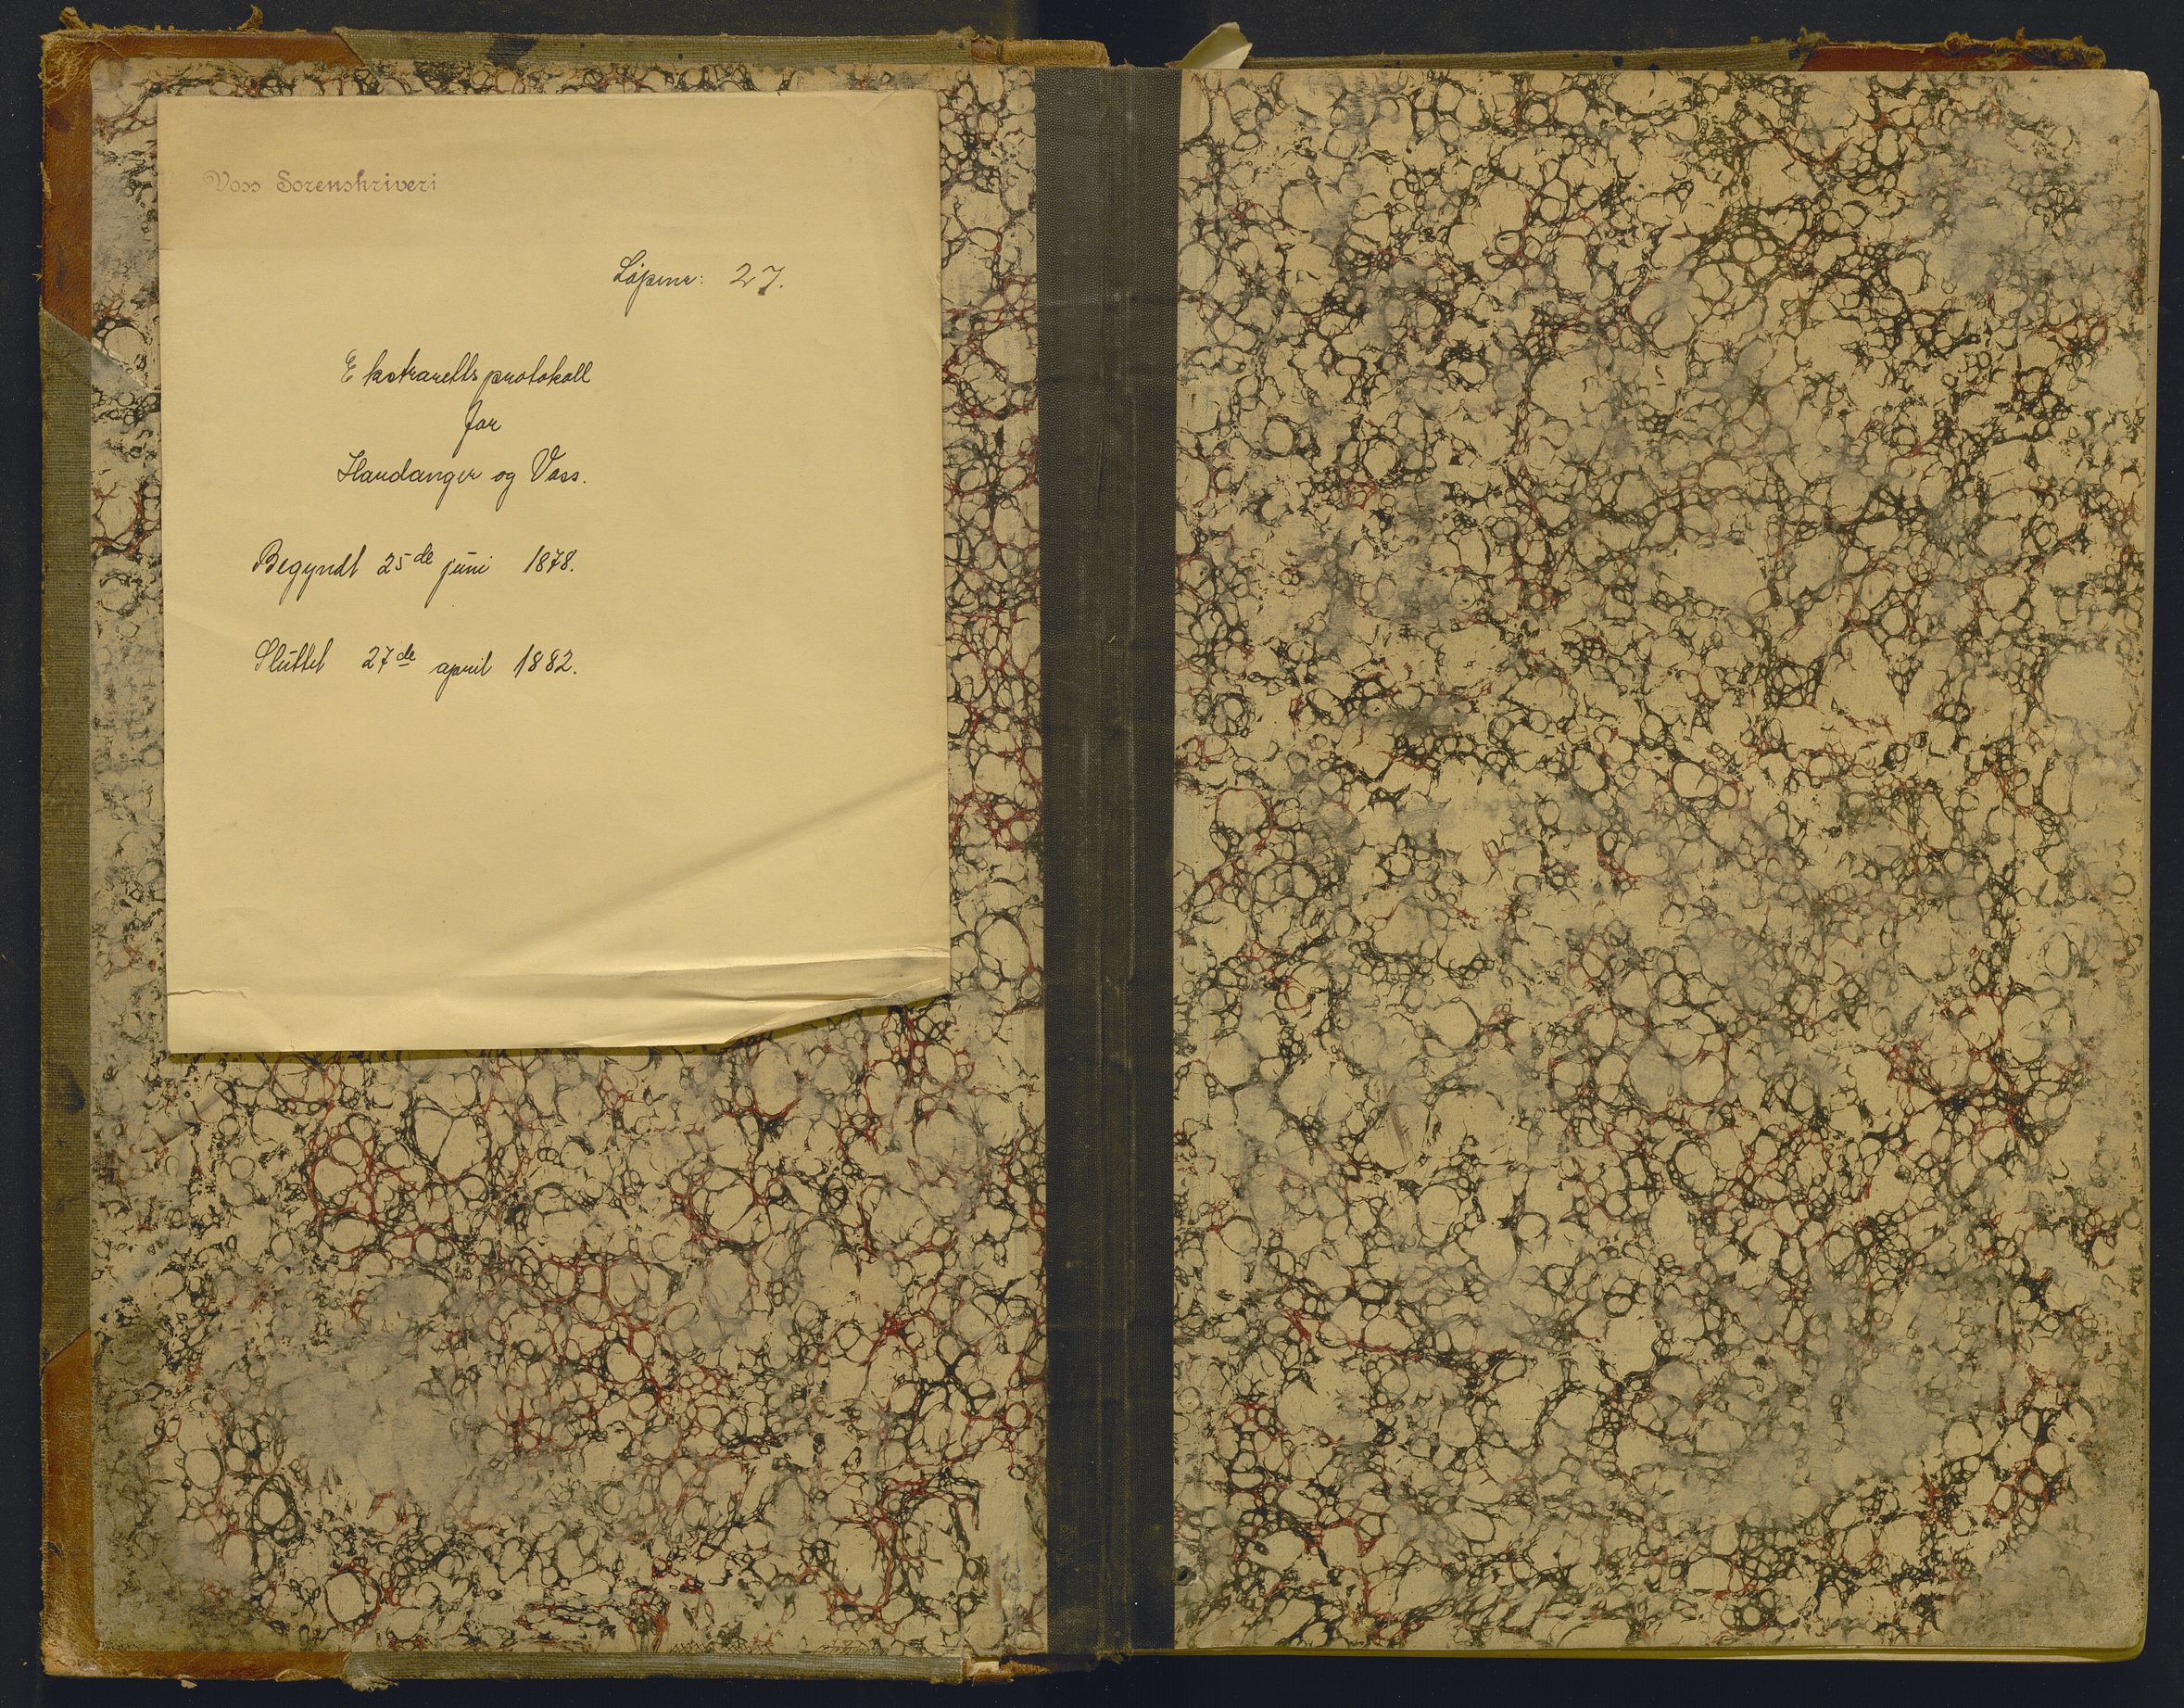 Voss Sorenskriveri
Löpenr: 27.
Ekstraretts protokoll
for
Hardanger og Voss.
Begyndt 25de juni 1878.
Sluttet 27de april 1882.